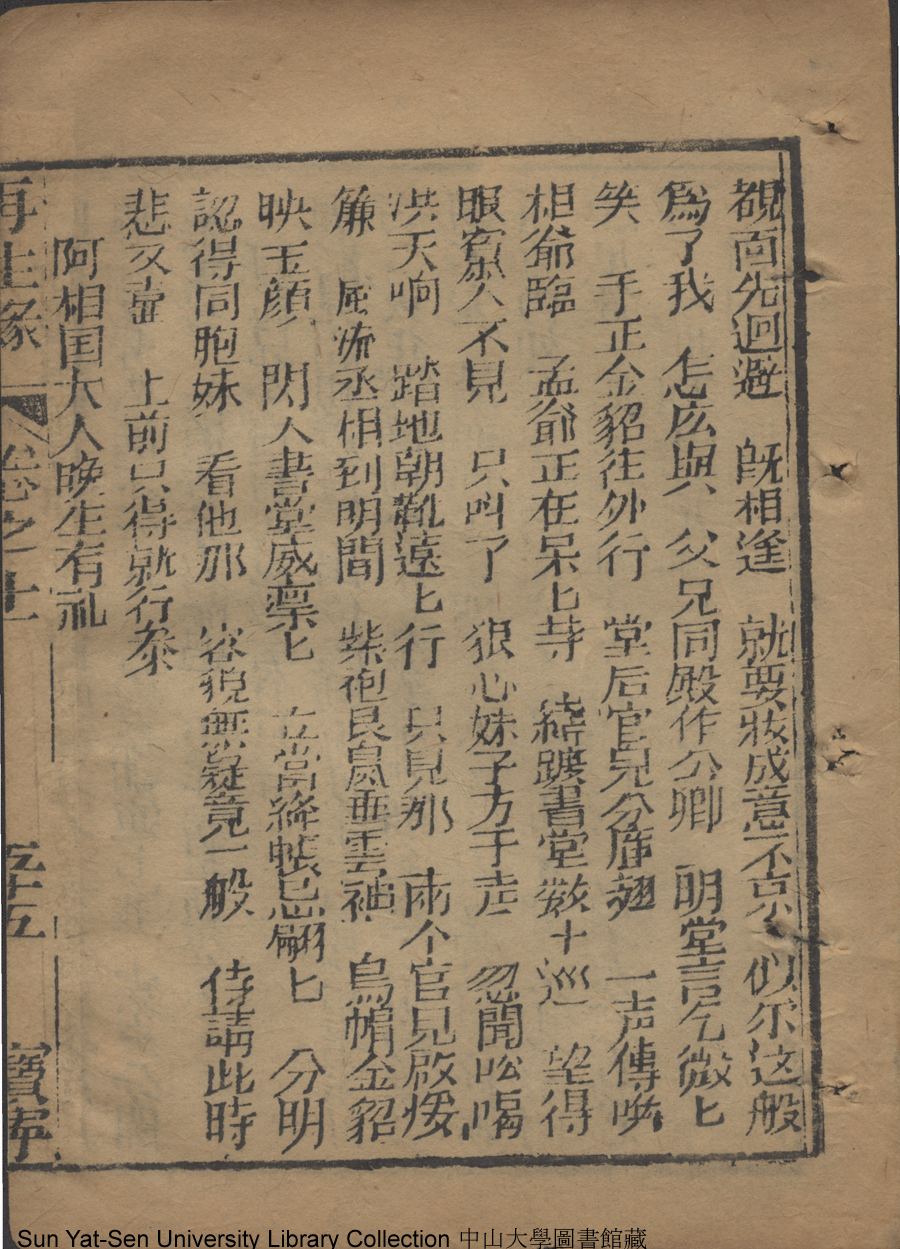 覩面先迴避 既相逢 就要妝成意不京 似尔这般
為了我 怎庅與 父兄同殿作公卿 明堂言乞微匕
笑 手正金貂往外行 堂后官兒分雁翅 一声傳喚
相爺臨 孟爺正在呆匕等 繞踱書堂數十巡 望得
眼穿人不見 只叫了 狠心妹子方于走 忽聞吆喝
洪天响 踏地朝靴遠匕行 只見那 兩个官兒啟煖
簾 風流丞相到明間 紫袍艮晑垂雲袖 烏帽金貂
映玉顏 閃入書堂威禀匕 立當絳帳忌翩匕 分明
認得同胞妹 看他那 容貌無疑竟一般 侍講此時
悲又喜 上前只得就行叅
阿相国大人晚生有礼
再生緣 卷之十 五十五 寶寧
Sun Yat-Sen University Library Collection 中山大學圖書館藏